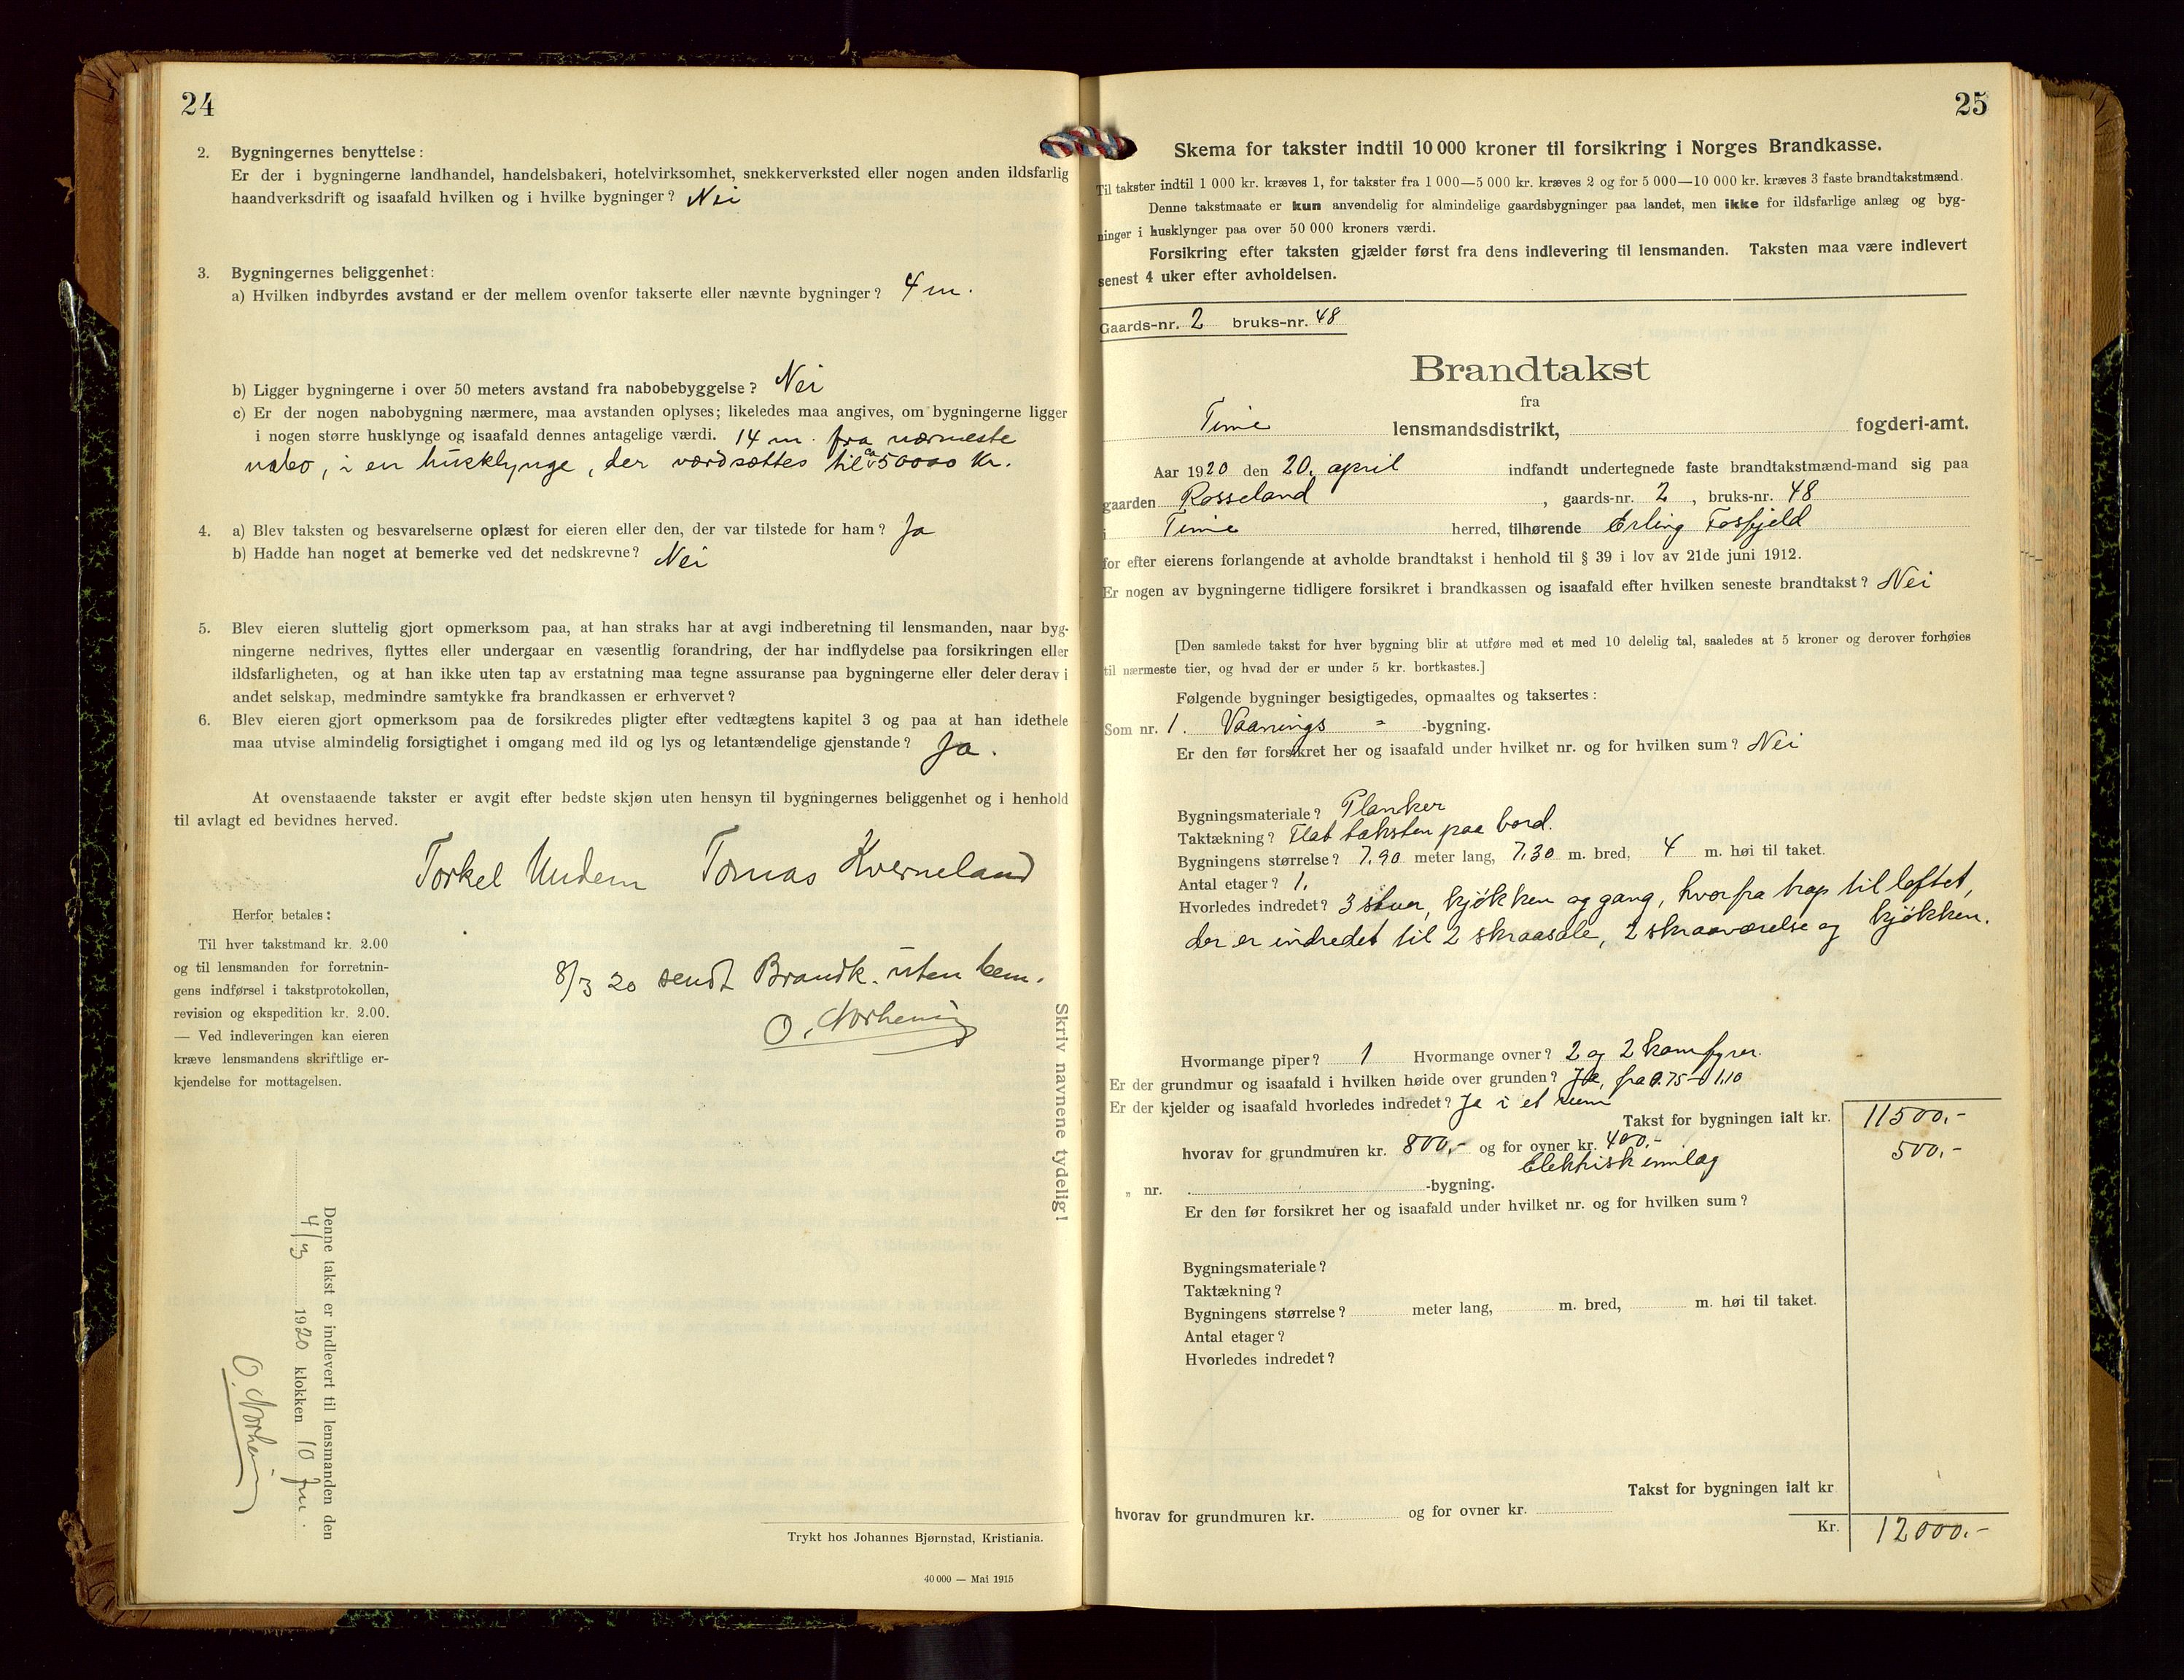 24
2. Bygningernes benyttelse:
Er der i bygningerne landhandel, handelsbakeri, hotelvirksomhet, snekkerverksted eller nogen anden ildsfarlig
haandverksdrift og isaafald hvilken og i hvilke bygninger? Nei
3. Bygningernes beliggenhet:
a) Hvilken indbyrdes avstand er der mellem ovenfor takserte eller nævnte bygninger? 4 m.
b) Ligger bygningerne i over 50 meters avstand fra nabobebyggelse? Nei
c) Er der nogen nabobygning nærmere, maa avstanden oplyses; likeledes maa angives, om bygningerne ligger
i nogen større husklynge og isaafald dennes antagelige værdi. 14 m. fra nærmeste
nabo, i en husklynge, der værdsættes til ca 50000 Kr.
4. a) Blev taksten og besvarelserne oplæst for eieren eller den, der var tilstede for ham? Ja
b) Hadde han noget at bemerke ved det nedskrevne? Nei
5. Blev eieren sluttelig gjort opmerksom paa, at han straks har at avgi indberetning til lensmanden, naar byg-
ningerne nedrives, flyttes eller undergaar en væsentlig forandring, der har indflydelse paa forsikringen eller
ildsfarligheten, og at han ikke uten tap av erstatning maa tegne assuranse paa bygningerne eller deler derav i
andet selskap, medmindre samtykke fra brandkassen er erhvervet?
6. Blev eieren gjort opmerksom paa de forsikredes pligter efter vedtægtens kapitel 3 og paa at han idethele
maa utvise almindelig forsigtighet i omgang med ild og lys og letantændelige gjenstande? Ja.
At ovenstaaende takster er avgit efter bedste skjøn uten hensyn til bygningernes beliggenhet og i henhold
til avlagt ed bevidnes herved.
Torkel Undem Tomas Kverneland
Herfor betales:
Til hver takstmand kr. 2.00
og til lensmanden for forretnin-
gens indførsel i takstprotokollen,
revision og ekspedition kr. 2.00.
— Ved indleveringen kan eieren
kræve lensmandens skriftlige er-
kjendelse for mottagelsen.
8/3 20 sendt Brandk. uten bem.
O.
Skriv navnene tydelig!
Denne takst er indlevert til lensmanden den
4/3 1920 klokken 10 fm.
O.
Trykt hos Johannes Bjørnstad, Kristiania.
40 000 — Mai 1915
25
Skema for takster indtil 10 000 kroner til forsikring i Norges Brandkasse.
Til takster indtil 1 000 kr. kræves 1, for takster fra 1 000—5 000 kr. kræves 2 og for 5 000—10 000 kr. kræves 3 faste brandtakstmænd.
Denne takstmaate er kun anvendelig for almindelige gaardsbygninger paa landet, men ikke for ildsfarlige anlæg og byg-
ninger i husklynger paa over 50 000 kroners værdi.
Forsikring efter taksten gjælder først fra dens indlevering til lensmanden. Taksten maa være indlevert
senest 4 uker efter avholdelsen.
Gaards-nr. 2 bruks-nr. 48
Brandtakst
fra
Time lensmandsdistrikt, fogderi-amt.
Aar 1920 den 20. april indfandt undertegnede faste brandtakstmænd-mand sig paa
gaarden Rosseland, gaards-nr. 2, bruks-nr. 48
i Time herred, tilhørende Erling Fosfjeld
for efter eierens forlangende at avholde brandtakst i henhold til § 39 i lov av 21de juni 1912.
Er nogen av bygningerne tidligere forsikret i brandkassen og isaafald efter hvilken seneste brandtakst? Nei
[Den samlede takst for hver bygning blir at utføre med et med 10 delelig tal, saaledes at 5 kroner og derover forhøies
til nærmeste tier, og hvad der er under 5 kr. bortkastes.]
Følgende bygninger besigtigedes, opmaaltes og taksertes:
Som nr. 1. Vaanings - -bygning.
Er den før forsikret her og isaafald under hvilket nr. og for hvilken sum? Nei
Bygningsmateriale? Planker
Taktækning? Flat taksten paa bord.
Bygningens størrelse? 7.90 meter lang, 7.30 m. bred, 4 m. høi til taket.
Antal etager? 1.
Hvorledes indredet? 3 stuer, kjøkken og gang, hvorfra trap til loftet,
der er indredet til 2 skraasale, 2 skraaværelse og kjøkken.
Hvormange piper? 1 Hvormange ovner? 2 og 2 komfyrer.
Er der grundmur og isaafald i hvilken høide over grunden? Ja, fra 0.75 - 1.10
Er der kjelder og isaafald hvorledes indredet? Ja i et rum
Takst for bygningen ialt kr. 11500.-
hvorav for grundmuren kr. 800,- og for ovner kr. 400,-
Elektrisk innlæg 500.-
„ nr. -bygning.
Er den før forsikret her og isaafald under hvilket nr. og for hvilken sum?
Bygningsmateriale?
Taktækning?
Bygningens størrelse? meter lang, m. bred, m. høi til taket.
Antal etager?
Hvorledes indredet?
Takst for bygningen ialt kr
hvorav for grundmuren kr. og for ovner kr.
Kr. 12000.-